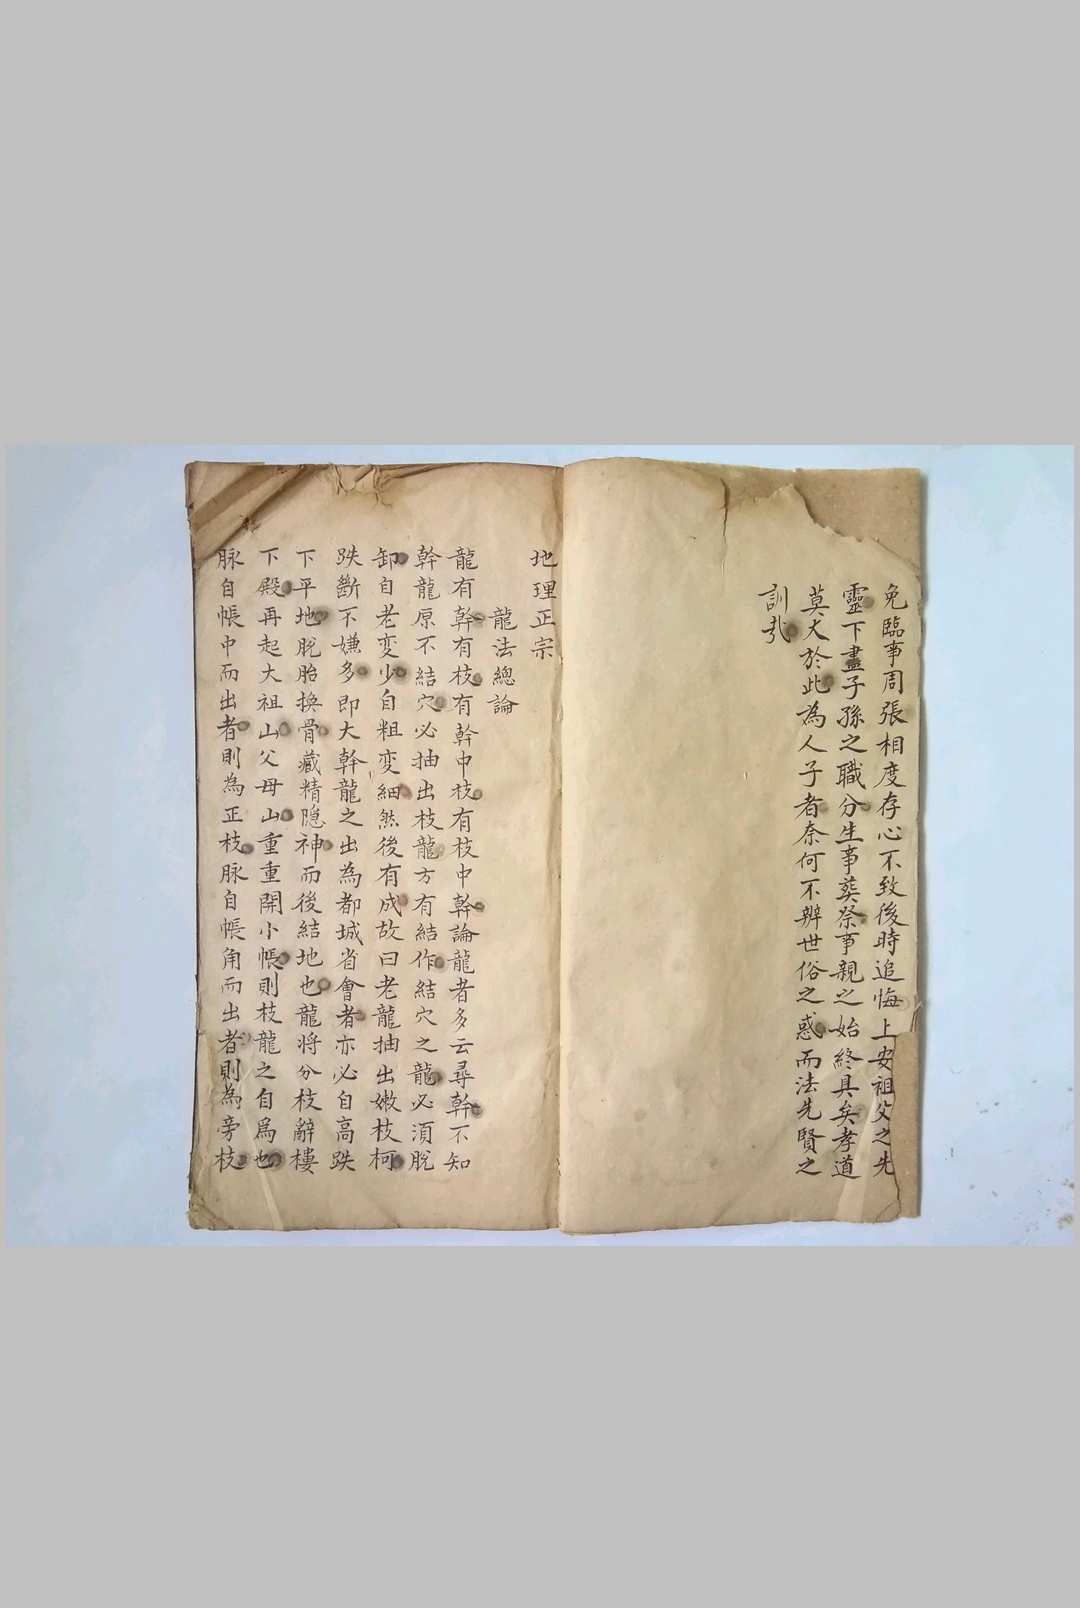 免臨事周張相度存心不致後時追悔上安祖父之先
靈下盡子孫之職分生事葬祭事親之始終具矣孝道
莫大於此為人子者奈何不辨世俗之惑而法先賢之
訓哉
地理正宗
龍法總論
龍有幹有枝有幹中枝有枝中幹論龍者多云尋幹不知
幹龍原不結穴必抽出枝龍方有結作結穴之龍必須脫
卸自老変少自粗変細然後有成故曰老龍抽出嫩枝柯
跌斷不嫌多即大幹龍之出為都城省會者亦必自高跌
下平地脫胎換骨藏精隱神而後結地也龍將分枝辭樓
下殿再起大祖山父母山重重開小帳則枝龍之自爲也
脉自帳中而出者則為正枝脉自帳角而出者則為旁枝